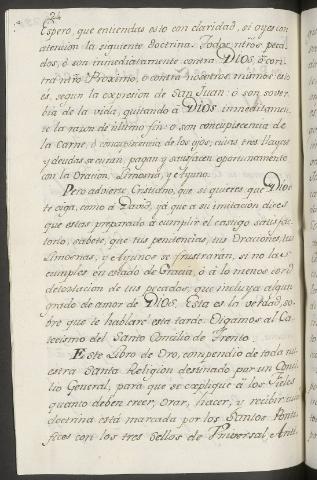 24
Espero, que entiendas esto con claridad, si oyes con
atencion la siguiente doctrina. Todos nrõs peca-
dos, ò son inmediatamente contra DIOS, ò con-
tra nrõ Proximo, ò contra nosotros mismos: esto
es, segun la expresion de San Juan: ò son sover-
bia de la vida, quitando à DIOS inmediatamen-
te la razon de ultimo fin: ò son concupiscencia de
la Carne, ò concupiscencia de los ojos; cuias tres llagas
y deudas se curan, pagan y satisfacen oportunamente
con la Oración, Limosna, y Ayuno.
Pero advierte, Cristiano, que si quieres que DIOS
te oiga, como à David, yà que a su imitacion dices
que estas preparado à cumplir el castigo satisfac-
torio, sabete, que tus penitencias, tus Oraciones, tus
Limosnas, y Ayunos se frustraràn, si no las
cumples en estado de Gracia, ò à lo menos con
detestacion de tus pecados, que incluya algun
grado de amor de DIOS. Esta es la verdad, so-
bre que te hablaré esta tarde. Oigamos al Ca-
tecismo del Santo Concilio de Trento.
Este Libro de Oro, compendio de toda nu-
estra Santa Religion destinado por un Conci-
lio General, para que se explique à los Fieles
quanto deben creer, Orar, hacer, y recibir; cuia
doctrina està marcada por los Santos Ponti-
fices con los tres Sellos de Universal, Anti-